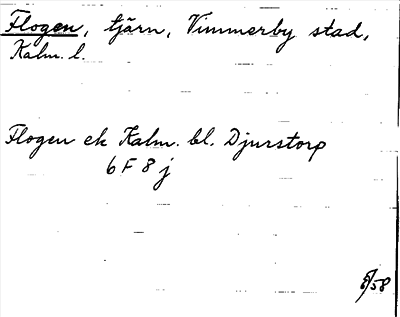 Flogen, tjärn, Vimmerby stad,
Kalm. l.
Flogen ek Kalm. bl. Djurstorp
6 F 8 j
8/58